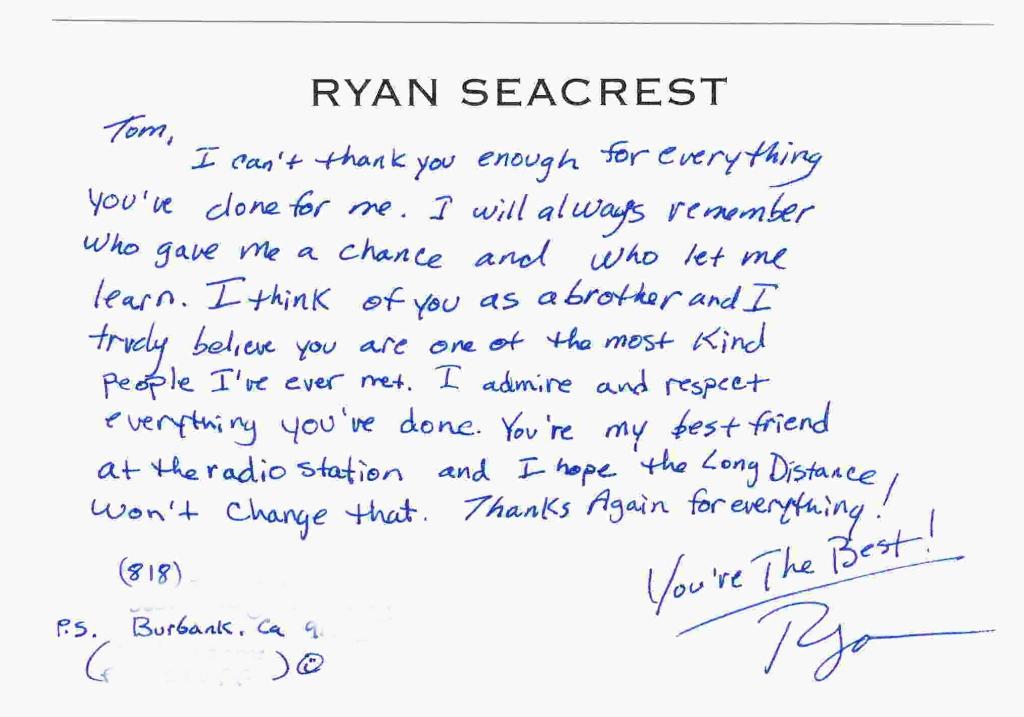 RYAN SEACREST
Tom,
I can't thank you enough for everything
you've done for me. I will always remember
who gave me a chance and who let me
learn. I think of you as a brother and I
truly believe you are one of the most kind
people I've ever met. I admire and respect
everything you've done. You're my best friend
at the radio station and I hope the Long Distance
won't change that. Thanks Again for everything!
You're The Best!
Ryan
(818)
P.S. Burbank. Ca 9
( ) ☺